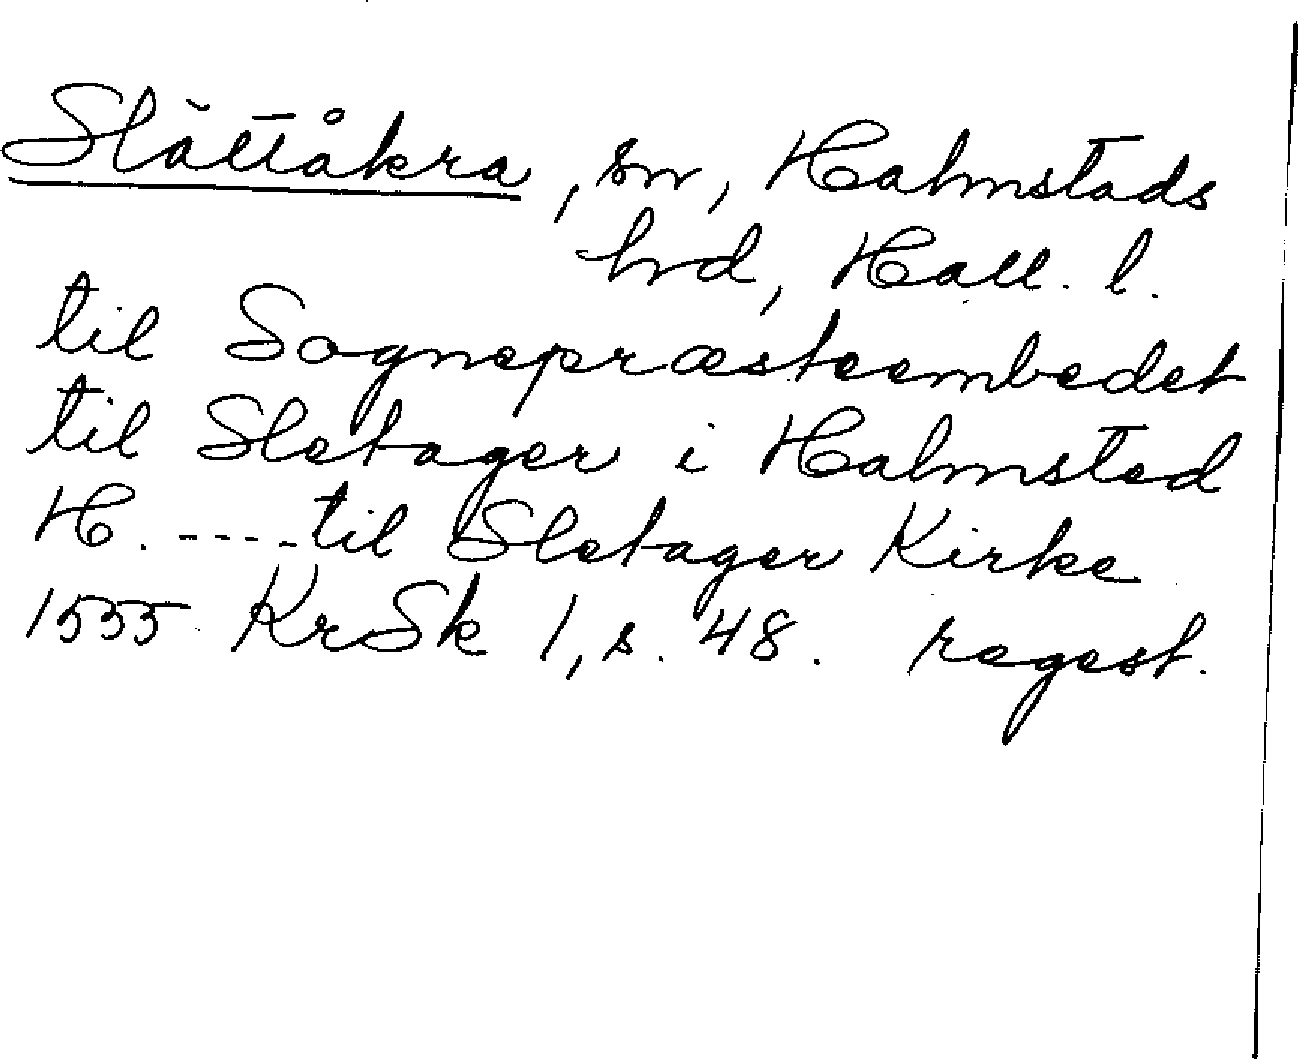 Slättåkra, sn, Halmstads
hrd, Hall. l.
til Sognepræsteembedet
til Sletager i Halmsted
H. ---- til Sletager Kirke
1535 KrSk 1, s. 48. regest.